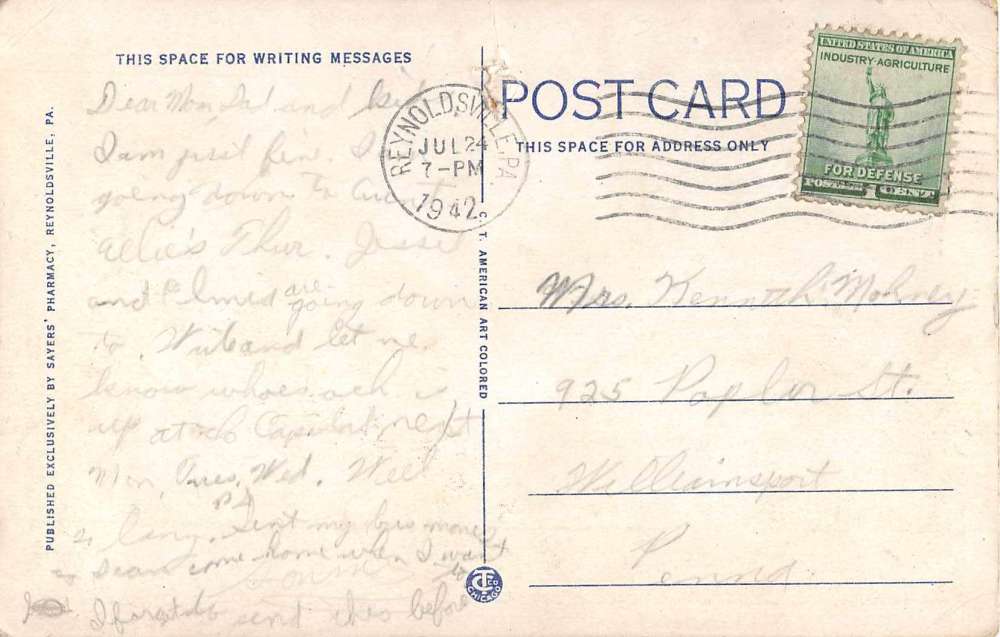 THIS SPACE FOR WRITING MESSAGES
Dear Mom Dad and
I am just fine. I
going down to Aunt
Allie's Thur. Jessie
and Elmer are going down
to. Write and let me
know
up at the Capitol next
Mon, Tues, Wed. Well
so long.
P.S. Sent my bus money
so I can come home when I want
to
I forgot to send this before
PUBLISHED EXCLUSIVELY BY SAYERS' PHARMACY, REYNOLDSVILLE, PA.
C. T. AMERICAN ART COLORED
CT CO
CHICAGO
REYNOLDSVILLE, PA
JUL 24
7-PM
1942
POST CARD
THIS SPACE FOR ADDRESS ONLY
UNITED STATES OF AMERICA
INDUSTRY-AGRICULTURE
FOR DEFENSE
POSTAGE 1 CENT
Mrs. Kenneth Mohney
925 Poplar St.
Williamsport
Penna.